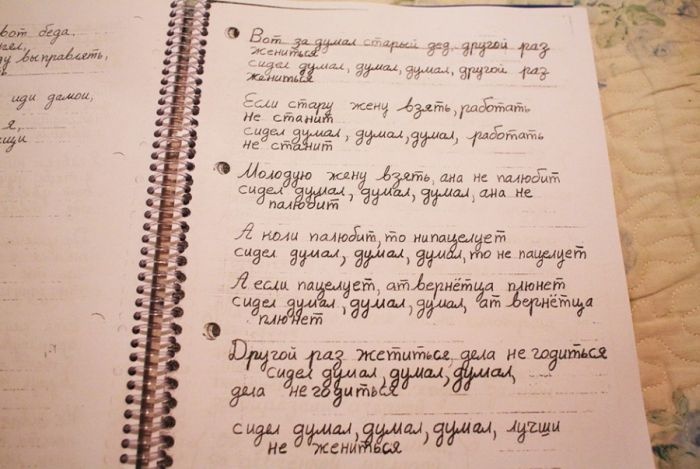 вот беда.
выправлять,
иди дамои,
я,
Вот за думал старый дед другой раз
жениться
сидел думал, думал, думал, другой раз
жениться
Если стару жену взять, работать
не станит
сидел думал, думал, думал, работать
не станит
Молодую жену взять, ана не палюбит
сидел думал, думал, думал, ана не
палюбит
А коли палюбит, то нипацелует
сидел думал, думал, думал, то не пацелует
А если пацелует, атвернётца плюнет
сидел думал, думал, думал, ат вернётца
плюнет
Другой раз жетиться, дела не годиться
сидел думал, думал, думал,
дела не годиться
сидел думал, думал, думал, лучши
не жениться